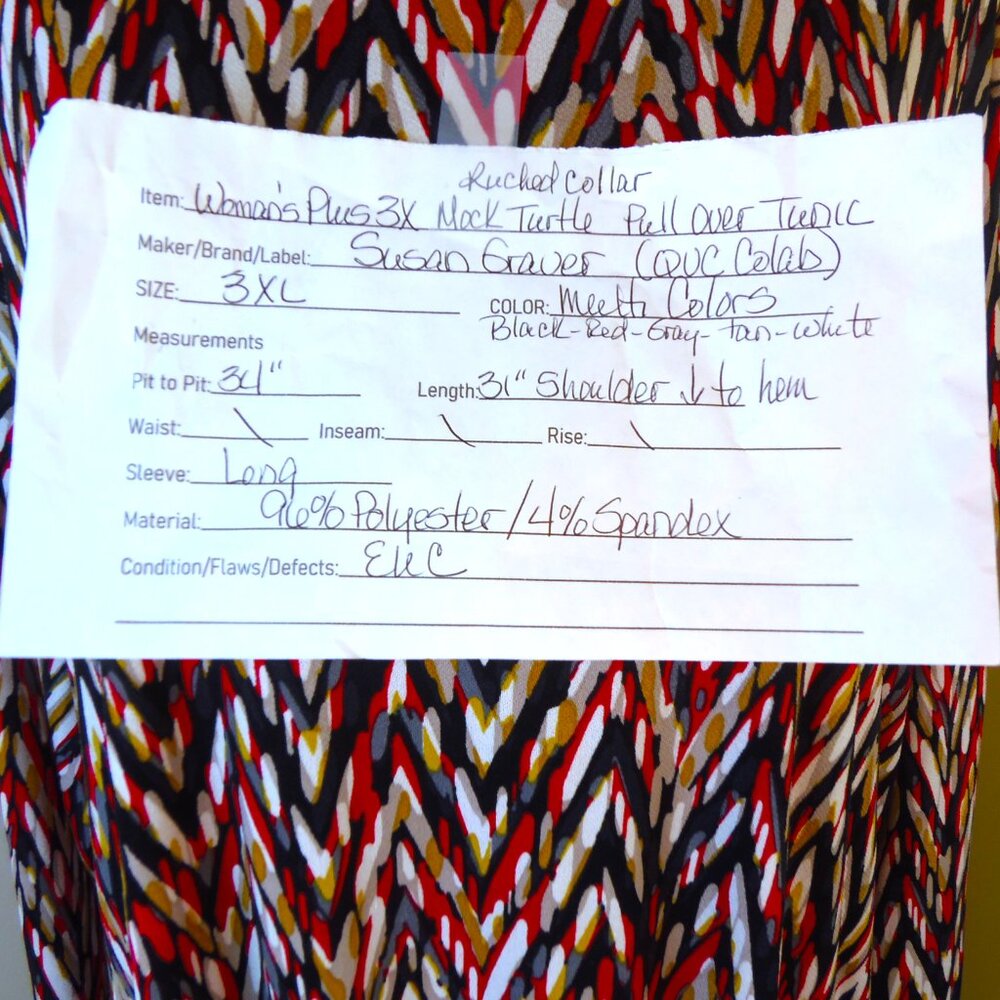 Ruched Collar
Item: Woman's Plus 3X Mock Turtle Pull Over Tunic
Maker/Brand/Label: Susan Graver (QVC Colab)
SIZE: 3XL
COLOR: Meeth Colors
Black-Red-Gray-Tan-White
Measurements
Pit to Pit: 34"
Length: 31" Shoulder ↓ to hem
Waist: \ Inseam: \ Rise: \
Sleeve: Long
Material: 96% Polyester/4% Spandex
Condition/Flaws/Defects: EUC